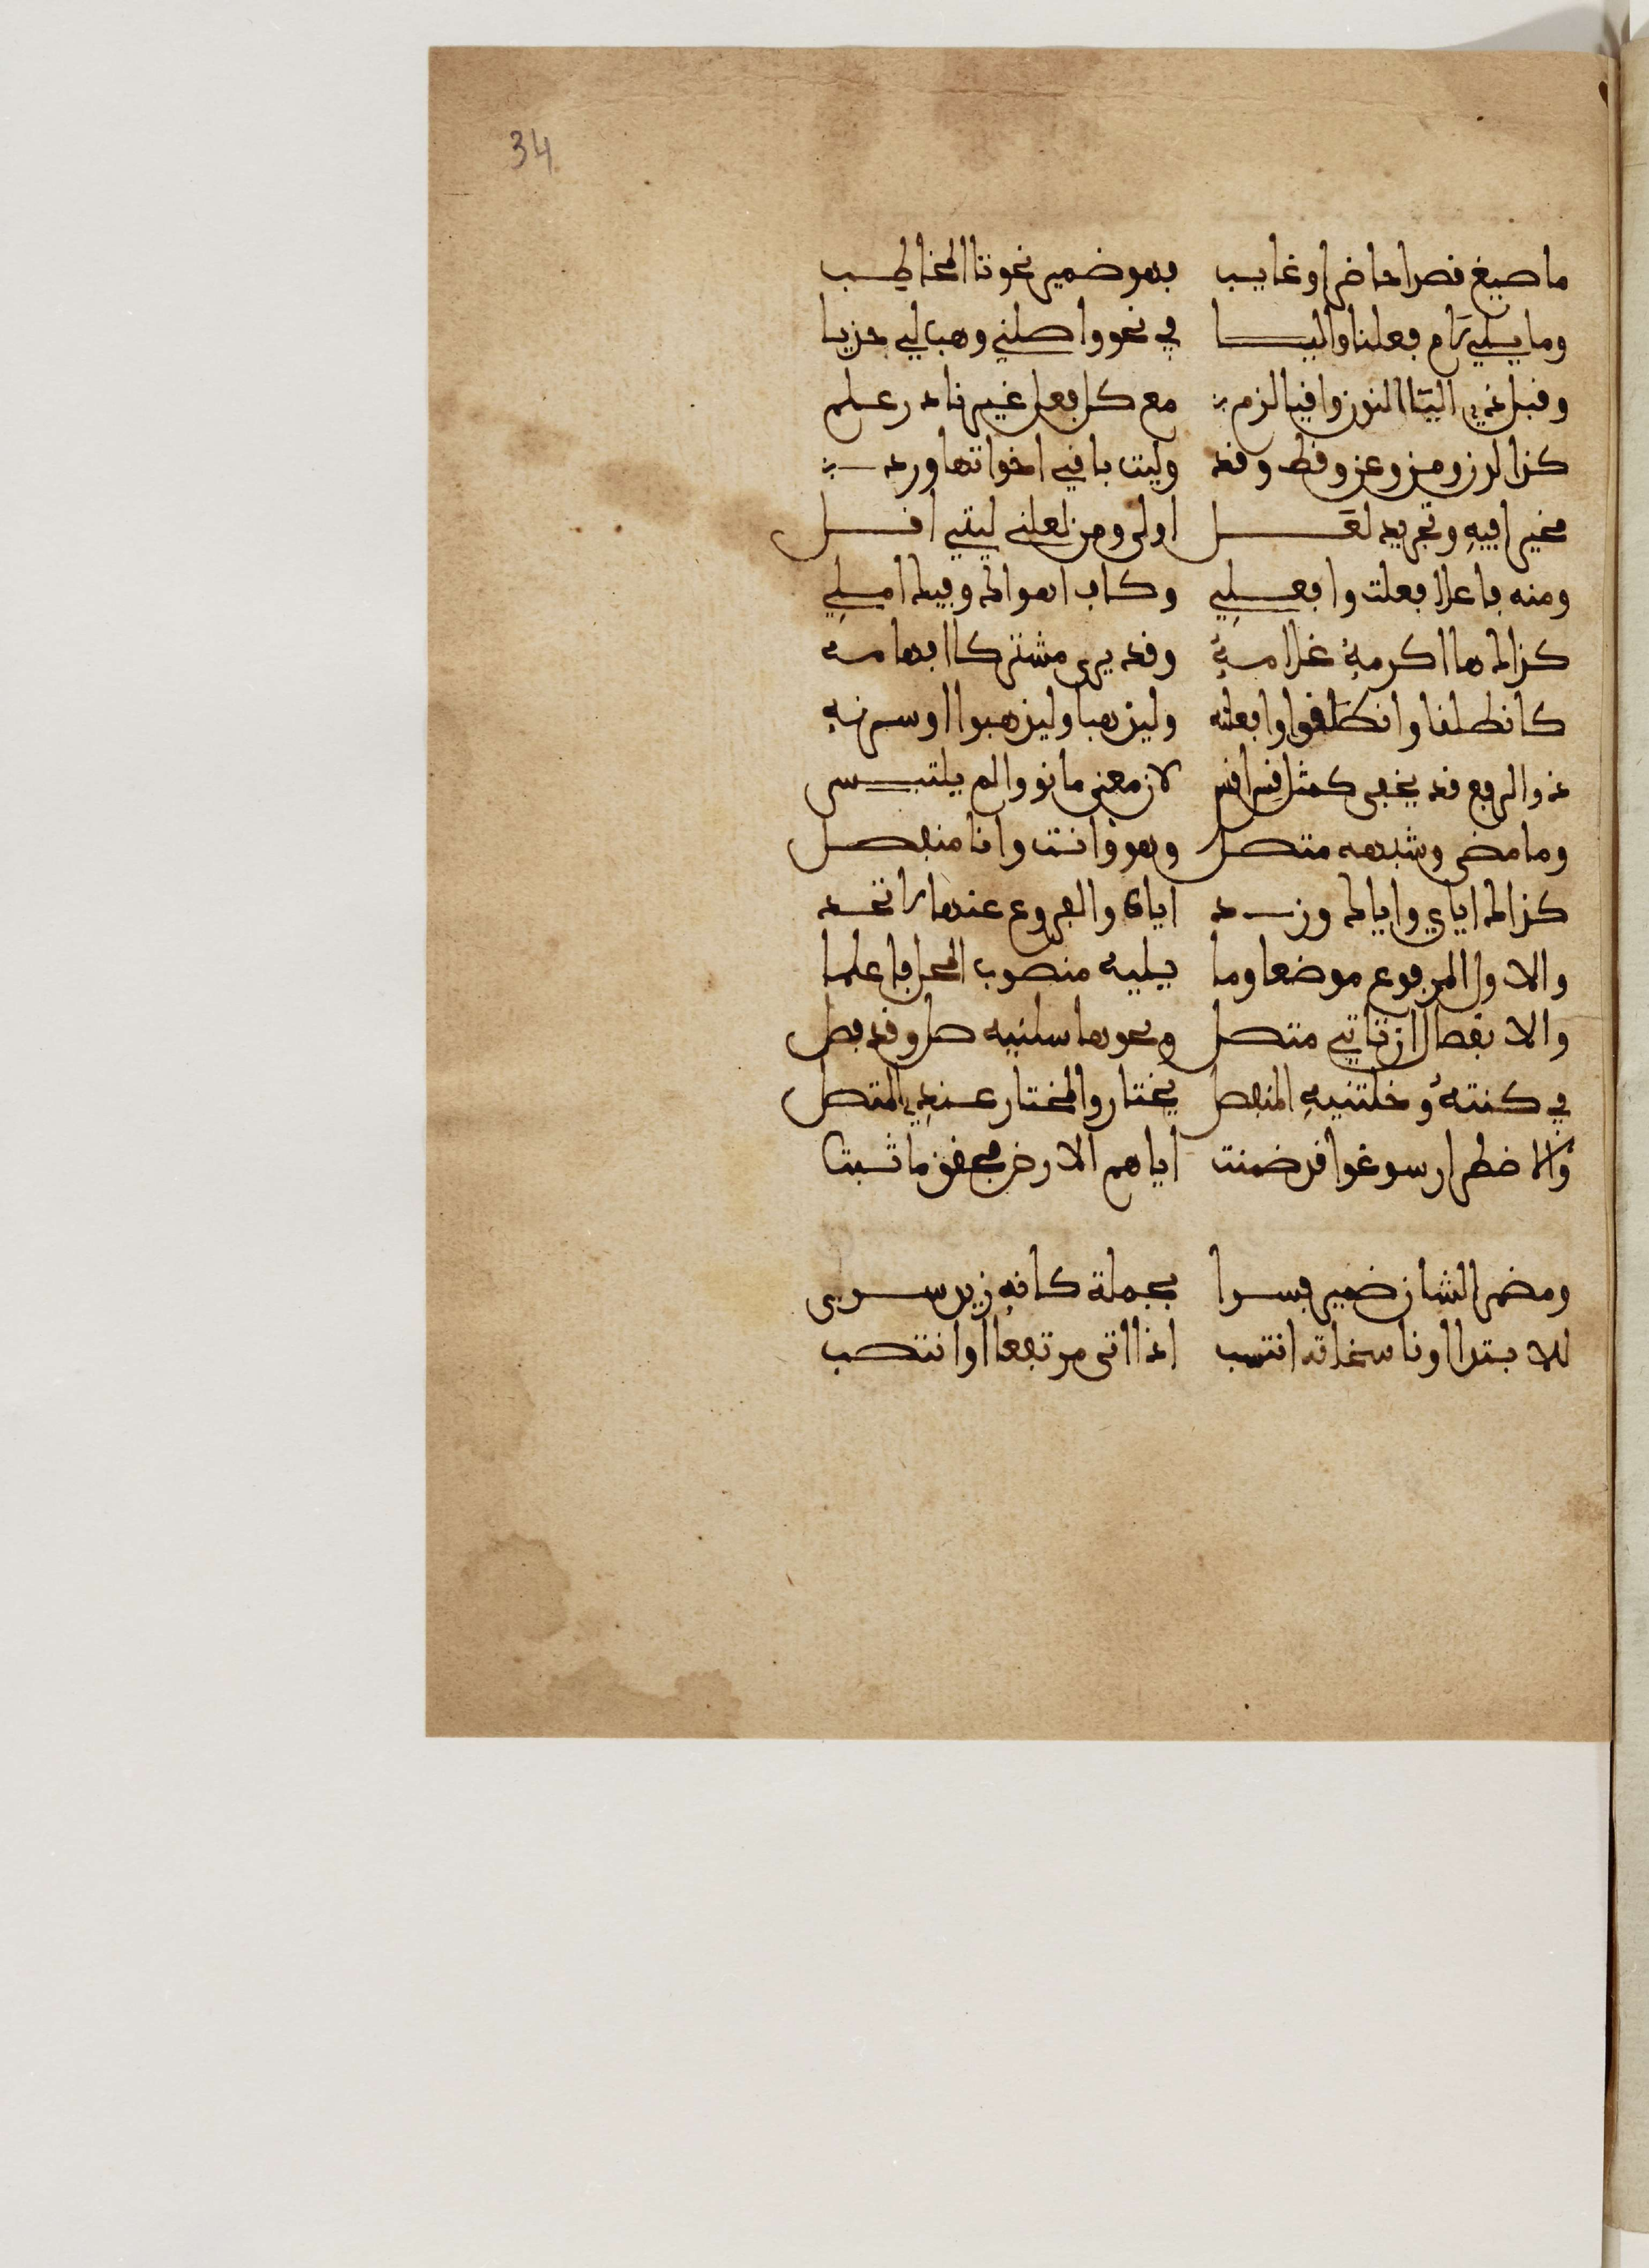 34
ما صيغ قصدا حاضر او غايب فهو ضمير نحو تا المخاطب
وما يلي رام فعلنا واليا في نحو واصلني وهب لي حزيا
وقبل ذي اليا النون واقيا لزم مع كل فعل غير نادر علم
كذا لدن ومن وعن وقط وقد وليت باقي اخواتها ورد
مخيرا فيه وتجريد لعل اولى ومن لعلني ليتي اقل
ومنه فاعلا فعلت وافعلي وكاف اهواك وفيك املي
كذاك ها اكرمه غلامه وقد يرى مشتركا ابهامه
كانطلقا وانطلقوا وافعلنه وليذهبا وليذهبوا اوسرنه
ذو الرفع قد يخفى كمثل قس اقس لان معنى ما نووا لم يلتبس
وما مضى وشبهه متصل وهو وانت وانا منفصل
كذاك اياي واياك وزد اياه والفروع عندها را تحد
والاول المرفوع موضعا وما يليه منصوب المحل فاعلما
والا نفصال ان تاتي متصل ونحو ها سلنيه صل وقد فصل
في كنته وخلتنيه المنفصل يختار والمختار عندي المتصل
والاضطرار سوغوا قد ضمنت اياهم الارض فحقق ما ثبتا
ومضمر الشان ضمير فسرا بجملة كانه زيد سرى
للابتدا او ناسخاته انتسب اذا اتى مرتفعا او انتصب